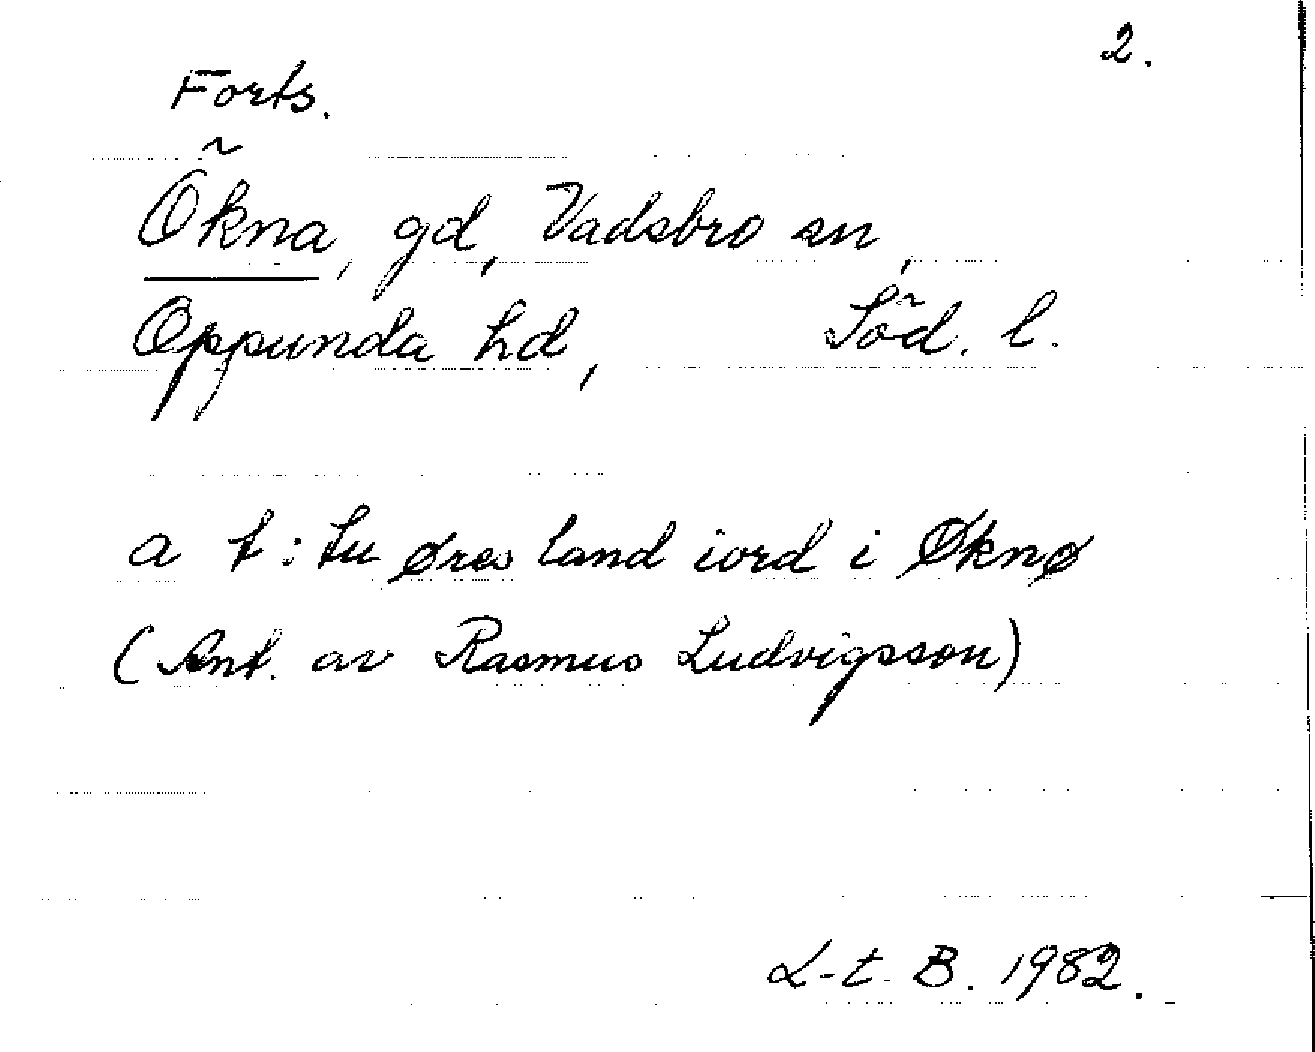 2.
Forts.
Ökna, gd, Vadsbro sn,
Oppunda hd, Söd. l.
a t: tu øres land iord i Øknø
(Ant. av Rasmus Ludvigsson)
L-t B. 1982.